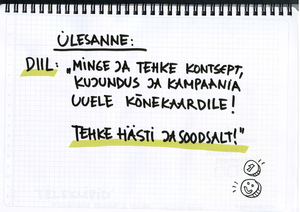 ÜLESANNE:
DIIL: „MINGE JA TEHKE KONTSEPT,
KUJUNDUS JA KAMPAANIA
UUELE KÕNEKAARDILE!
TEHKE HÄSTI JA SOODSALT!"